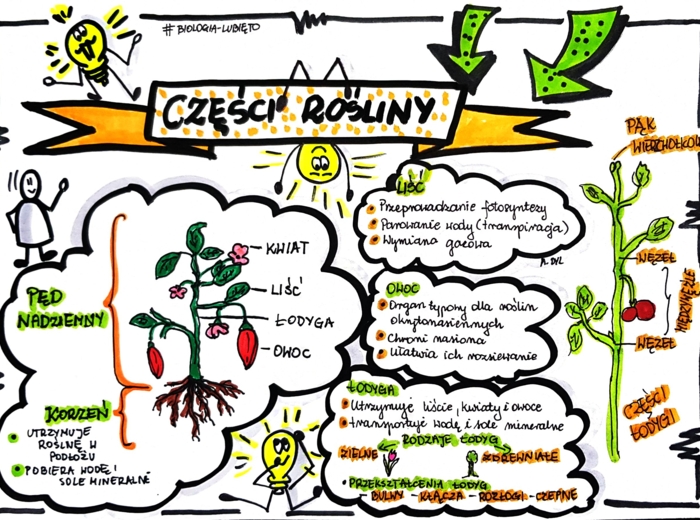 #BIOLOGIA-LUBIĘTO
CZĘŚCI ROŚLINY
PĘD
NADZIEMNY
KORZEŃ
UTRZYMUJE
ROŚLINĘ W
PODŁOŻU
POBIERA WODĘ I
SOLE MINERALNE
KWIAT
LIŚĆ
ŁODYGA
OWOC
LIŚĆ
Przeprowadzanie fotosyntezy
Parowanie wody (transpiracja)
Wymiana gazowa
A. DYL
OWOC
Organ typowy dla roślin
okrytonasiennych
Chroni nasiona
Ułatwia ich rozsiewanie
ŁODYGA
Utrzymuje liście, kwiaty i owoce
transportuje wodę i sole mineralne
RODZAJE ŁODYG
ZIELNE
ZDREWNIAŁE
PRZEKSZTAŁCENIA ŁODYG
BULWY - KŁĄCZA - ROZŁOGI - CZEPNE
PĄK
WIERZCHOŁKOW
WĘZEŁ
MIĘDZYWĘŹLE
WĘZEŁ
CZĘŚCI
ŁODYGI